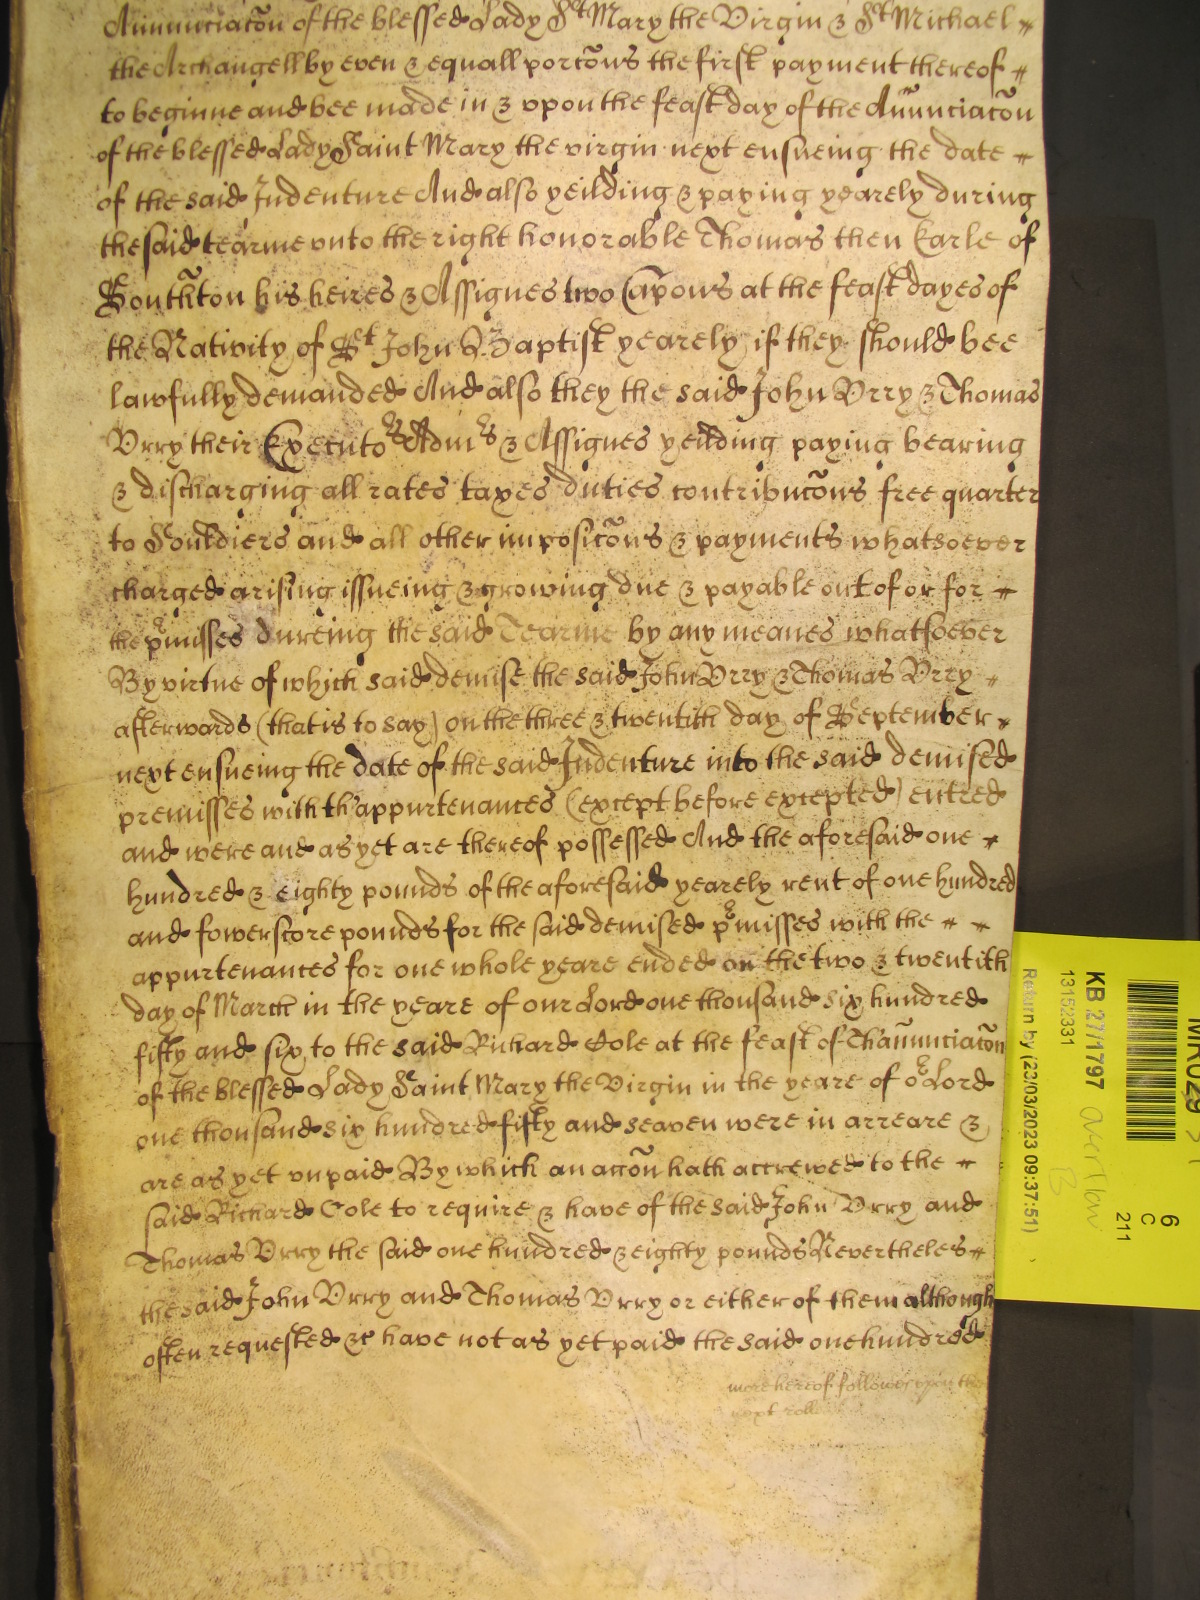 Annunciacõn of the blessed Lady St Mary the Virgin & St Michael
the Archangell by even & equall porcõns the first payment thereof
to beginne and bee made in & vpon the feast day of the Anunciacõn
of the blessed Lady Saint Mary the virgin next ensueing the date
of the said Indenture And also yeilding & paying yearely during
the said tearme vnto the right honorable Thomas then Earle of
Southton his heires & Assignes two Capons at the feast dayes of
the Nativity of St John Baptist yearely if they should bee
lawfully demanded And also they the said John Vrry & Thomas
Vrry their Executors Admrs & Assignes yeilding paying bearing
& discharging all rates taxes duties contribucõns free quarter
to Souldiers and all other imposicõns & payments whatsoever
charged arising issueing & growing due & payable out of or for
the pmisses dureing the said Tearme by any meanes whatsoever
By virtue of which said demise the said John Vrry & Thomas Vrry
afterwards (that is to say) on the three & twentith day of September
next ensueing the date of the said Indenture into the said demised
premisses with thappurtenances (except before excepted) entred
and were and as yet are thereof possessed And the aforesaid one
hundred & eighty pounds of the aforesaid yearely rent of one hundred
and fowerscore pounds for the said demised pmisses with the
appurtenances for one whole yeare ended on the two & twentith
day of March in the yeare of our Lord one thousand six hundred
fifty and six to the said Richard Cole at the feast of Thanunciacõn
of the blessed Lady Saint Mary the Virgin in the yeare of or Lord
one thousand six hundred fifty and seaven were in arreare &
are as yet vnpaid By which an accõn hath accrewed to the
said Richard Cole to require & have of the said John Vrry and
Thomas Vrry the said one hundred & eighty pounds Nevertheles
the said John Vrry and Thomas Vrry or either of them although
often requested &c have not as yet paid the said one hundred
more hereof followes vpon the
next roll
KB 27/1797
13152331
Return by (23/03/2023 09:37:51)
6
C
211
overflow
B